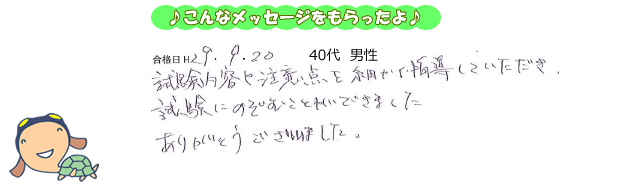 ♪こんなメッセージをもらったよ♪
合格日 H29.9.20 40代 男性
試験内容や注意点を細かく指導していただき、
試験にのぞむことができました
ありがとうございました。